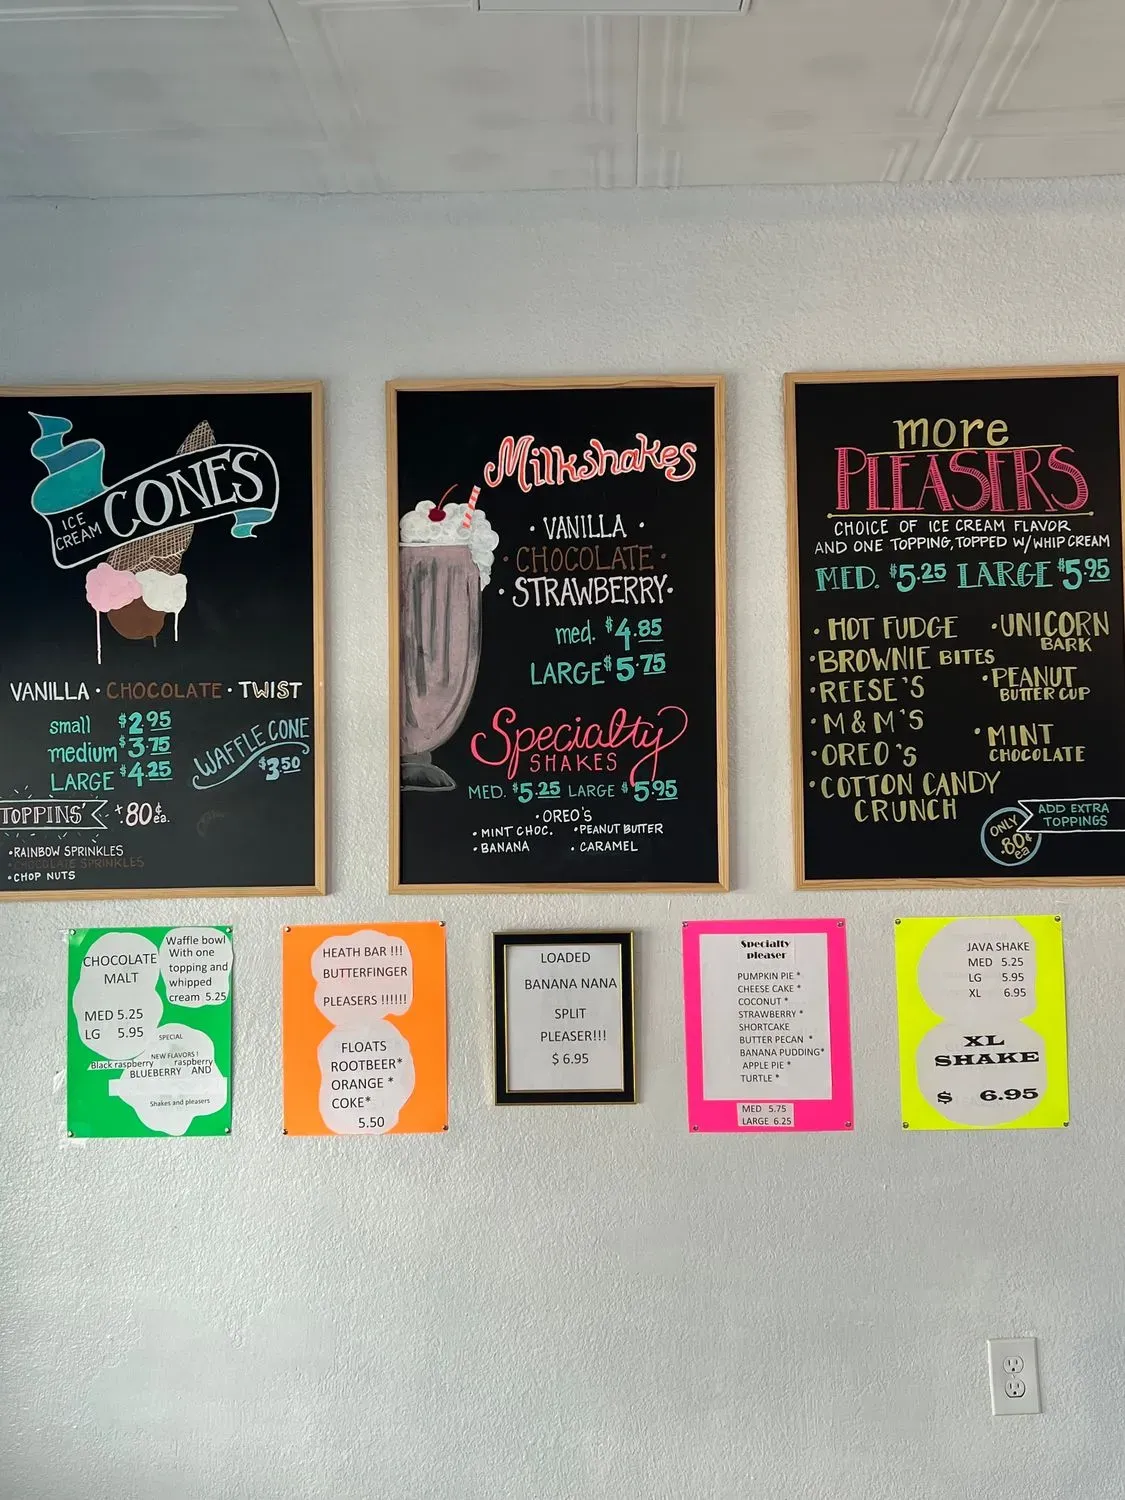 ICE
CREAM
CONES
VANILLA · CHOCOLATE · TWIST
small $2.95
medium $3.75
LARGE $4.25
WAFFLE CONE
$3.50
TOPPINS' +.80¢ ea.
•RAINBOW SPRINKLES
•CHOCOLATE SPRINKLES
•CHOP NUTS
Milkshakes
• VANILLA •
• CHOCOLATE •
• STRAWBERRY•
med. $4.85
LARGE $5.75
Specialty
SHAKES
MED. $5.25 LARGE $5.95
•OREO'S
•MINT CHOC. •PEANUT BUTTER
•BANANA •CARAMEL
more
PLEASERS
CHOICE OF ICE CREAM FLAVOR
AND ONE TOPPING, TOPPED W/WHIP CREAM
MED. $5.25 LARGE $5.95
•HOT FUDGE
•BROWNIE BITES
•REESE'S
•M&M'S
•OREO'S
•COTTON CANDY
CRUNCH
•UNICORN
BARK
•PEANUT
BUTTER CUP
•MINT
CHOCOLATE
ONLY
.80¢
ea
ADD EXTRA
TOPPINGS
CHOCOLATE
MALT
MED 5.25
LG 5.95
Waffle bowl
With one
topping and
whipped
cream 5.25
SPECIAL
NEW FLAVORS !
Black raspberry raspberry
BLUEBERRY AND
Shakes and pleasers
HEATH BAR !!!
BUTTERFINGER
PLEASERS !!!!!!
FLOATS
ROOTBEER*
ORANGE *
COKE*
5.50
LOADED
BANANA NANA
SPLIT
PLEASER!!!
$ 6.95
Specialty
pleaser
PUMPKIN PIE *
CHEESE CAKE *
COCONUT *
STRAWBERRY *
SHORTCAKE
BUTTER PECAN *
BANANA PUDDING*
APPLE PIE *
TURTLE *
MED 5.75
LARGE 6.25
JAVA SHAKE
MED 5.25
LG 5.95
XL 6.95
XL
SHAKE
$ 6.95